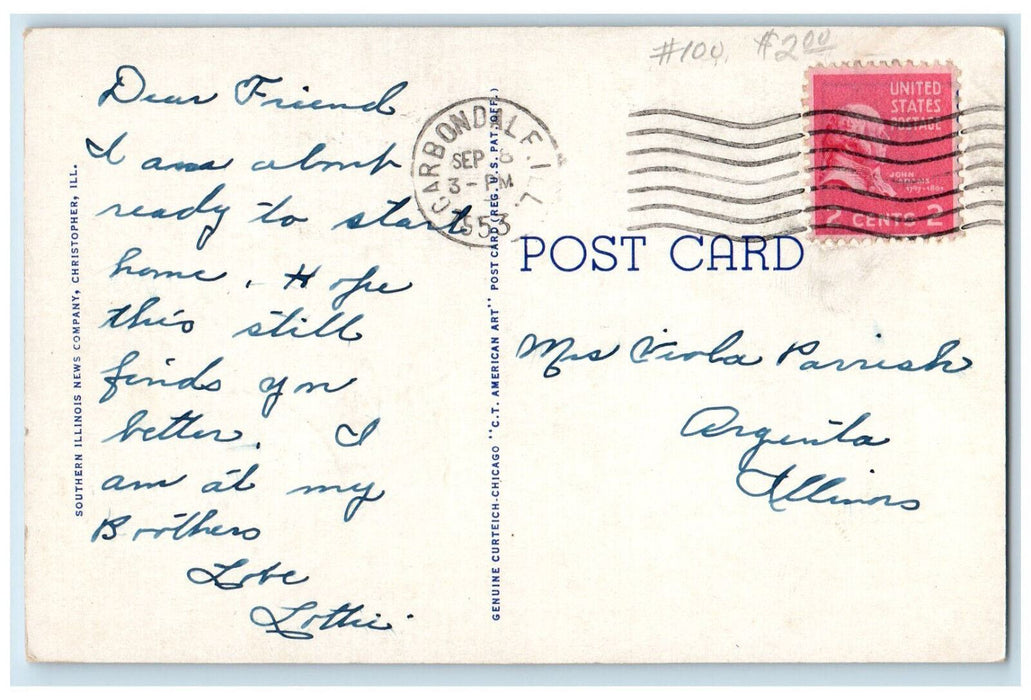 #100. $2.00
Dear Friend
I am about
ready to start
home. Hope
this still
finds you
better. I
am at my
Brothers
Love
Lottie.
SOUTHERN ILLINOIS NEWS COMPANY, CHRISTOPHER, ILL.
CARBONDALE, ILL.
SEP 8
3-PM
1953
GENUINE CURTEICH-CHICAGO "C.T. AMERICAN ART" POST CARD (REG. U.S. PAT. OFF.)
POST CARD
UNITED
STATES
POSTAGE
JOHN
ADAMS
1797-1801
2 CENTS 2
Mrs Viola Parrish
Argenta
Illinois